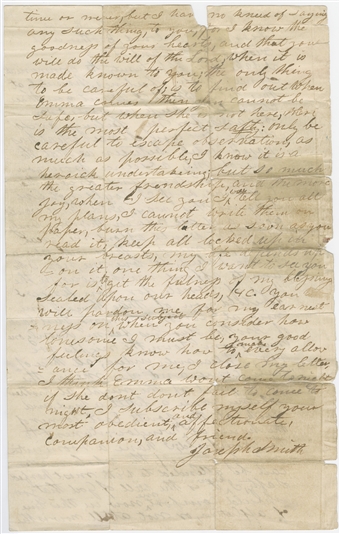 time or never, but I have no kneed of saying
any such thing, to you, for I know the
goodness of your hearts, and that you
will do the will of the Lord, when it is
made known to you; the only thing
to be careful of, is to find out when
Emma comes then you cannot be
safe, but when she is not here, there
is the most perfect safty: only be
careful to escape observation, as
much as possible, I know it is a
heroick undertakeing; but so much
the greater friendship, and the more
joy, when I see you I will tell you all
my plans, I cannot write them on
paper, burn this letter as soon as you
read it; keep all locked up in
your breasts, my life depends up
on it, one thing I want to see you
for is to get the fulness of my blessings
sealed upon our heads, &c. you
will pardon me for my earnest
ness on this subject when you consider how
lonesome I must be, your good
feelings know how to make every allow
ance for me, I close my letter,
I think Emma wont come tonight
if she dont dont fail to come to
night, I subscribe myself your
most obedient, and affectionate,
companion, and friend.
Joseph Smith